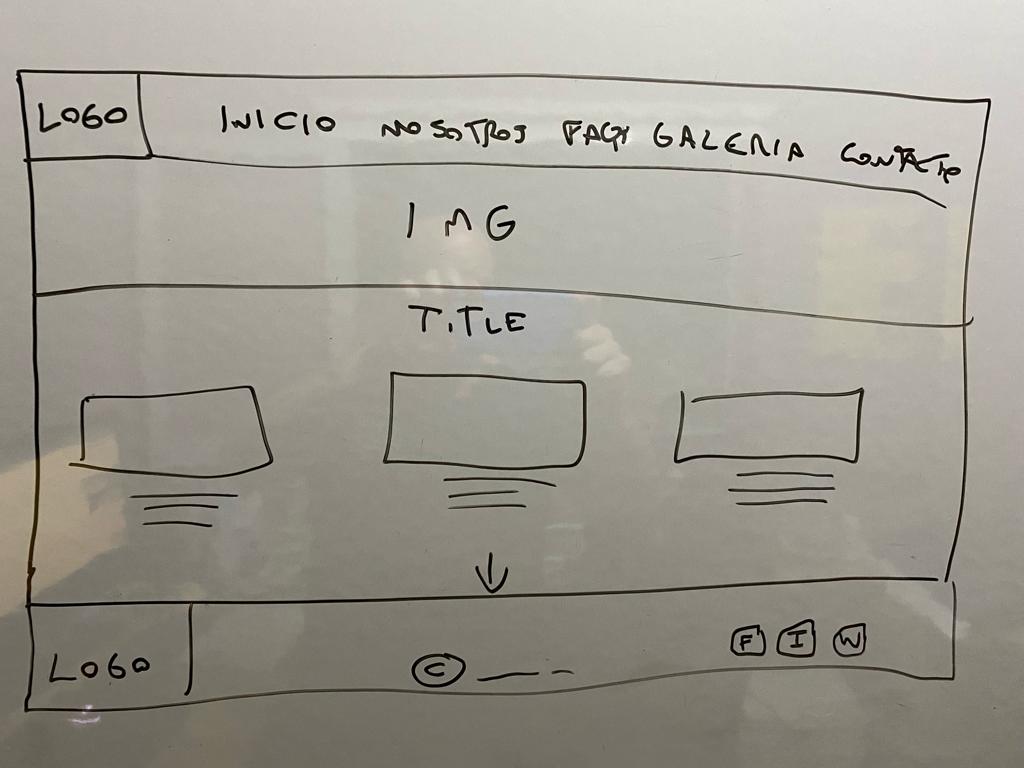 LOGO INICIO NOSOTROS FAQS GALERIA CONTACTO
IMG
TITLE
LOGO © F I W